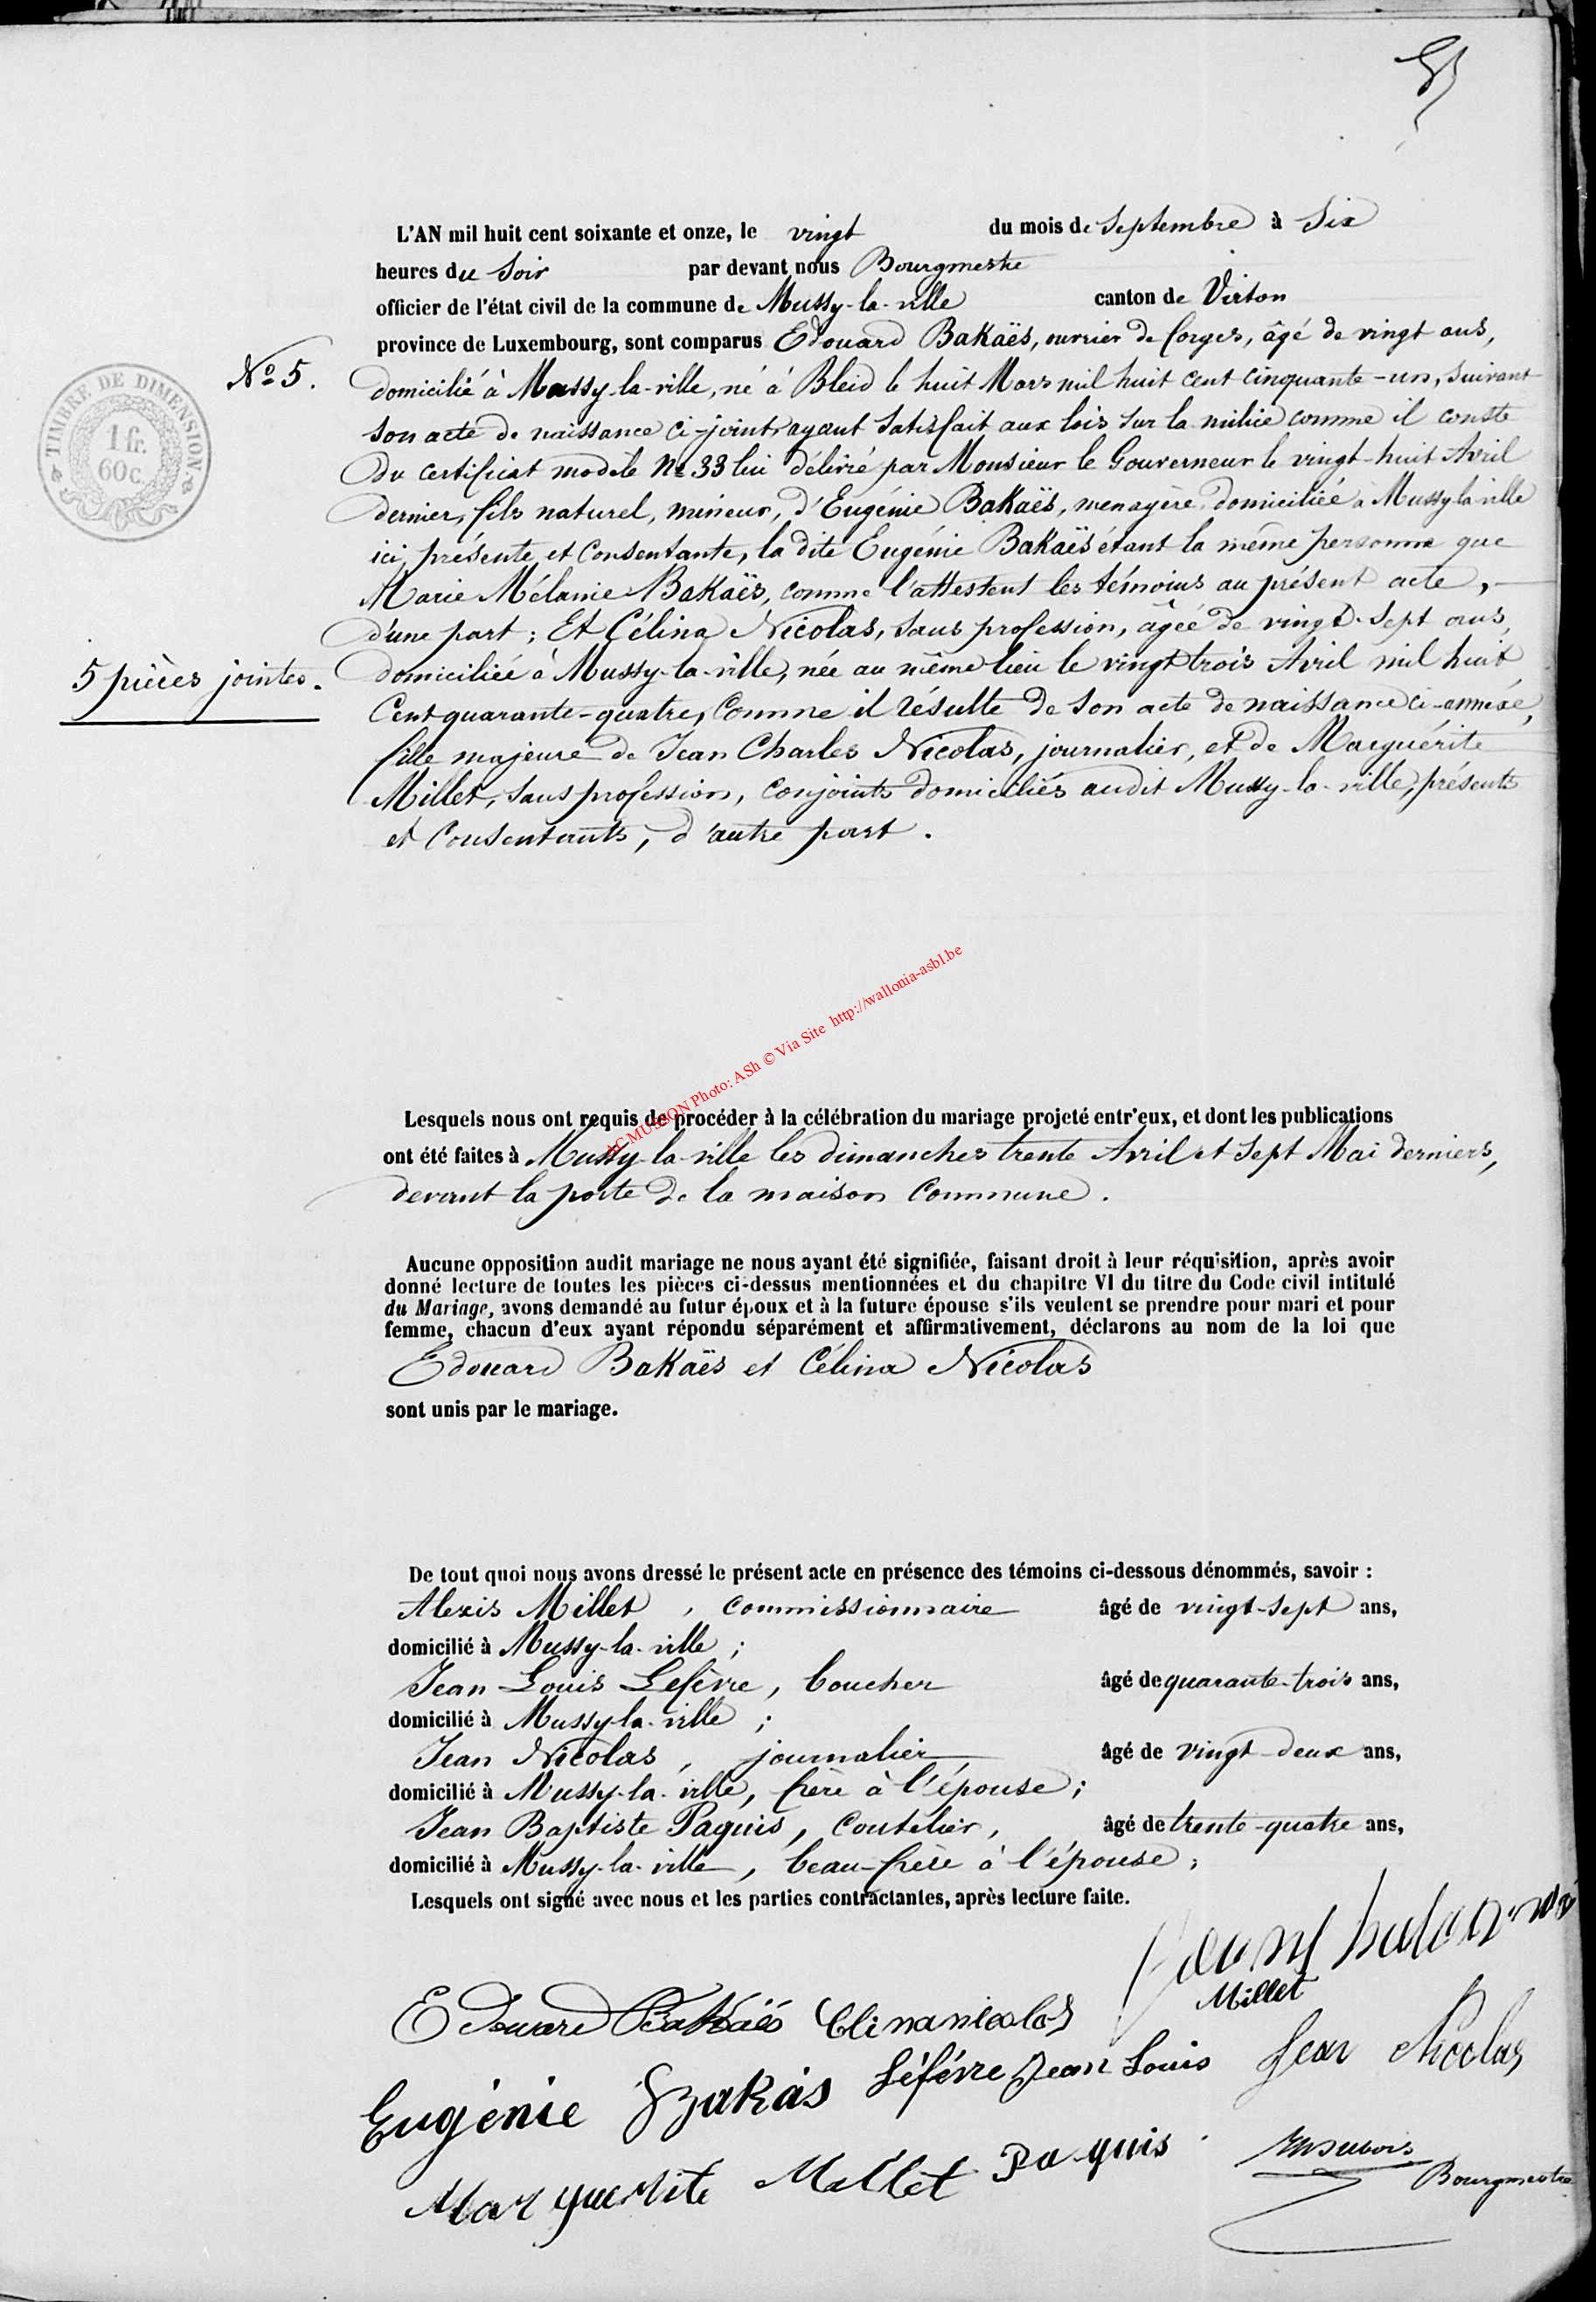 L'AN mil huit cent soixante et onze, le vingt du mois de Septembre à Six
heures du Soir par devant nous Bourgmestre
officier de l'état civil de la commune de Mussy-la-ville canton de Virton
province de Luxembourg, sont comparus Edouard Bakaës, ouvrier de forges, âgé de vingt ans,
N° 5.
TIMBRE DE DIMENSION
1 fr.
60 c.
domicilié à Mussy-la-ville, né à Bleid le huit Mars mil huit cent cinquante-un, suivant
son acte de naissance ci-joint, ayant satisfait aux lois sur la milice comme il conste
du certificat modèle N° 33 lui délivré par Monsieur le Gouverneur le vingt-huit Avril
dernier, fils naturel, mineur, d'Eugénie Bakaës, menagère domiciliée à Mussy-la-ville
ici présente et consentante, la dite Eugénie Bakaës étant la même personne que
Marie Mélanie Bakaës, comme l'attestent les témoins au présent acte,
d'une part ; Et Célina Nicolas, sans profession, âgée de vingt-sept ans,
5 pièces jointes.
domiciliée à Mussy-la-ville, née au même lieu le vingt trois Avril mil huit
cent quarante-quatre, comme il résulte de son acte de naissance ci-annéxé,
fille majeure de Jean Charles Nicolas, journalier, et de Marguérite
Millet, sans profession, conjoints domiciliés audit Mussy-la-ville, présents
et consentants, d'autre part.
AC MUSSON Photo: ASh © Via Site http://wallonia-asbl.be
Lesquels nous ont requis de procéder à la célébration du mariage projeté entr'eux, et dont les publications
ont été faites à Mussy-la-ville les dimanches trente Avril et sept Mai derniers,
devant la porte de la maison Commune.
Aucune opposition audit mariage ne nous ayant été signifiée, faisant droit à leur réquisition, après avoir
donné lecture de toutes les pièces ci-dessus mentionnées et du chapitre VI du titre du Code civil intitulé
du Mariage, avons demandé au futur époux et à la future épouse s'ils veulent se prendre pour mari et pour
femme, chacun d'eux ayant répondu séparément et affirmativement, déclarons au nom de la loi que
Edouard Bakaës et Célina Nicolas
sont unis par le mariage.
De tout quoi nous avons dressé le présent acte en présence des témoins ci-dessous dénommés, savoir :
Alexis Millet, commissionnaire âgé de vingt-sept ans,
domicilié à Mussy-la-ville ;
Jean Louis Lefèvre, boucher âgé de quarante-trois ans,
domicilié à Mussy-la-ville ;
Jean Nicolas, journalier âgé de vingt-deux ans,
domicilié à Mussy-la-ville, frère à l'épouse ;
Jean Baptiste Paquis, coutelier, âgé de trente-quatre ans,
domicilié à Mussy-la-ville, beau-frère à l'épouse ;
Lesquels ont signé avec nous et les parties contractantes, après lecture faite.
Millet
Edouard Bakaës Clinanicolas
Eugénie Bzakas Léfévre Jean Louis Jean Nicolas
Marguerite Mellet Paquis
Bourgmestre